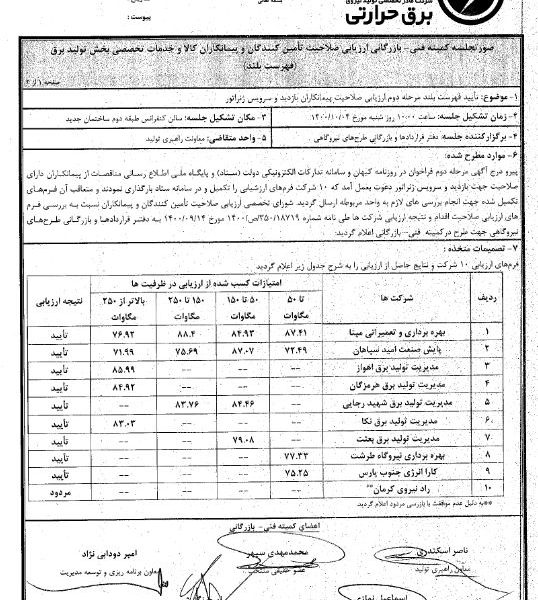 شرکت مادر تخصصی تولید نیروی
برق حرارتی
پیوست :
صورتجلسه کمیته فنی – بازرگانی ارزیابی صلاحیت تأمین کنندگان و پیمانکاران کالا و خدمات تخصصی بخش تولید برق
(فهرست بلند)
صفحه ۱ از ۲
۱- موضوع: تأیید فهرست بلند مرحله دوم ارزیابی صلاحیت پیمانکاران بازدید و سرویس ژنراتور
۲- زمان تشکیل جلسه: ساعت ۱۰:۰۰ روز شنبه مورخ ۱۴۰۰/۱۰/۰۴
۳- مکان تشکیل جلسه: سالن کنفرانس طبقه دوم ساختمان جدید
۴- برگزارکننده جلسه: دفتر قراردادها و بازرگانی طرح‌های نیروگاهی
۵- واحد متقاضی: معاونت راهبری تولید
۶- موارد مطرح شده:
پیرو درج آگهی مرحله دوم فراخوان در روزنامه کیهان و سامانه تدارکات الکترونیکی دولت (ستاد) و پایگاه ملی اطلاع رسانی مناقصات از پیمانکاران دارای
صلاحیت جهت بازدید و سرویس ژنراتور دعوت بعمل آمد که ۱۰ شرکت فرم‌های ارزشیابی را تکمیل و در سامانه ستاد بارگذاری نمودند و متعاقب آن فرم‌های
تکمیل شده جهت انجام بررسی های لازم به واحد مربوطه ارسال گردید. شورای تخصصی ارزیابی صلاحیت تأمین کنندگان و پیمانکاران نسبت به بررسی فرم
های ارزیابی صلاحیت اقدام و نتیجه ارزیابی شرکت ها طی نامه شماره ۳۵۰/۱۸۷۱۹/ص/۱۴۰۰ مورخ ۱۴۰۰/۰۹/۱۴ به دفتر قراردادها و بازرگانی طرح‌های
نیروگاهی جهت طرح در کمیته فنی – بازرگانی اعلام گردید.
۷- تصمیمات متخذه :
فرم‌های ارزیابی ۱۰ شرکت و نتایج حاصل از ارزیابی را به شرح جدول زیر اعلام گردید
ردیف شرکت ها امتیازات کسب شده از ارزیابی در ظرفیت ها نتیجه ارزیابی
تا ۵۰ مگاوات ۵۰ تا ۱۵۰ مگاوات ۱۵۰ تا ۲۵۰ مگاوات بالاتر از ۲۵۰ مگاوات
۱ بهره برداری و تعمیراتی مپنا ۸۷.۴۱ ۸۴.۹۳ ۸۸.۴ ۷۶.۹۲ تأیید
۲ پایش صنعت امید سپاهان ۷۲.۴۹ ۸۷.۰۷ ۷۵.۶۹ ۷۱.۹۹ تأیید
۳ مدیریت تولید برق اهواز -- -- -- ۸۵.۹۹ تأیید
۴ مدیریت تولید برق هرمزگان -- -- -- ۸۴.۹۲ تأیید
۵ مدیریت تولید برق شهید رجایی -- ۸۴.۴۶ ۸۳.۷۶ -- تأیید
۶ مدیریت تولید برق نکا -- -- -- ۸۳.۰۳ تأیید
۷ مدیریت تولید برق بعثت -- ۷۹.۰۸ -- -- تأیید
۸ بهره برداری نیروگاه طرشت ۷۷.۳۳ -- -- -- تأیید
۹ کارا انرژی جنوب پارس ۷۵.۲۵ -- -- -- تأیید
۱۰ راد نیروی کرمان** -- -- -- -- مردود
**به دلیل عدم موفقیت با بازرسی مردود اعلام گردید
اعضای کمیته فنی- بازرگانی
ناصر اسکندری
معاون راهبری تولید
محمدمهدی سپهر
عضو حقیقی منتخب
امیر دودابی نژاد
معاون برنامه ریزی و توسعه مدیریت
اسماعیل نمازی